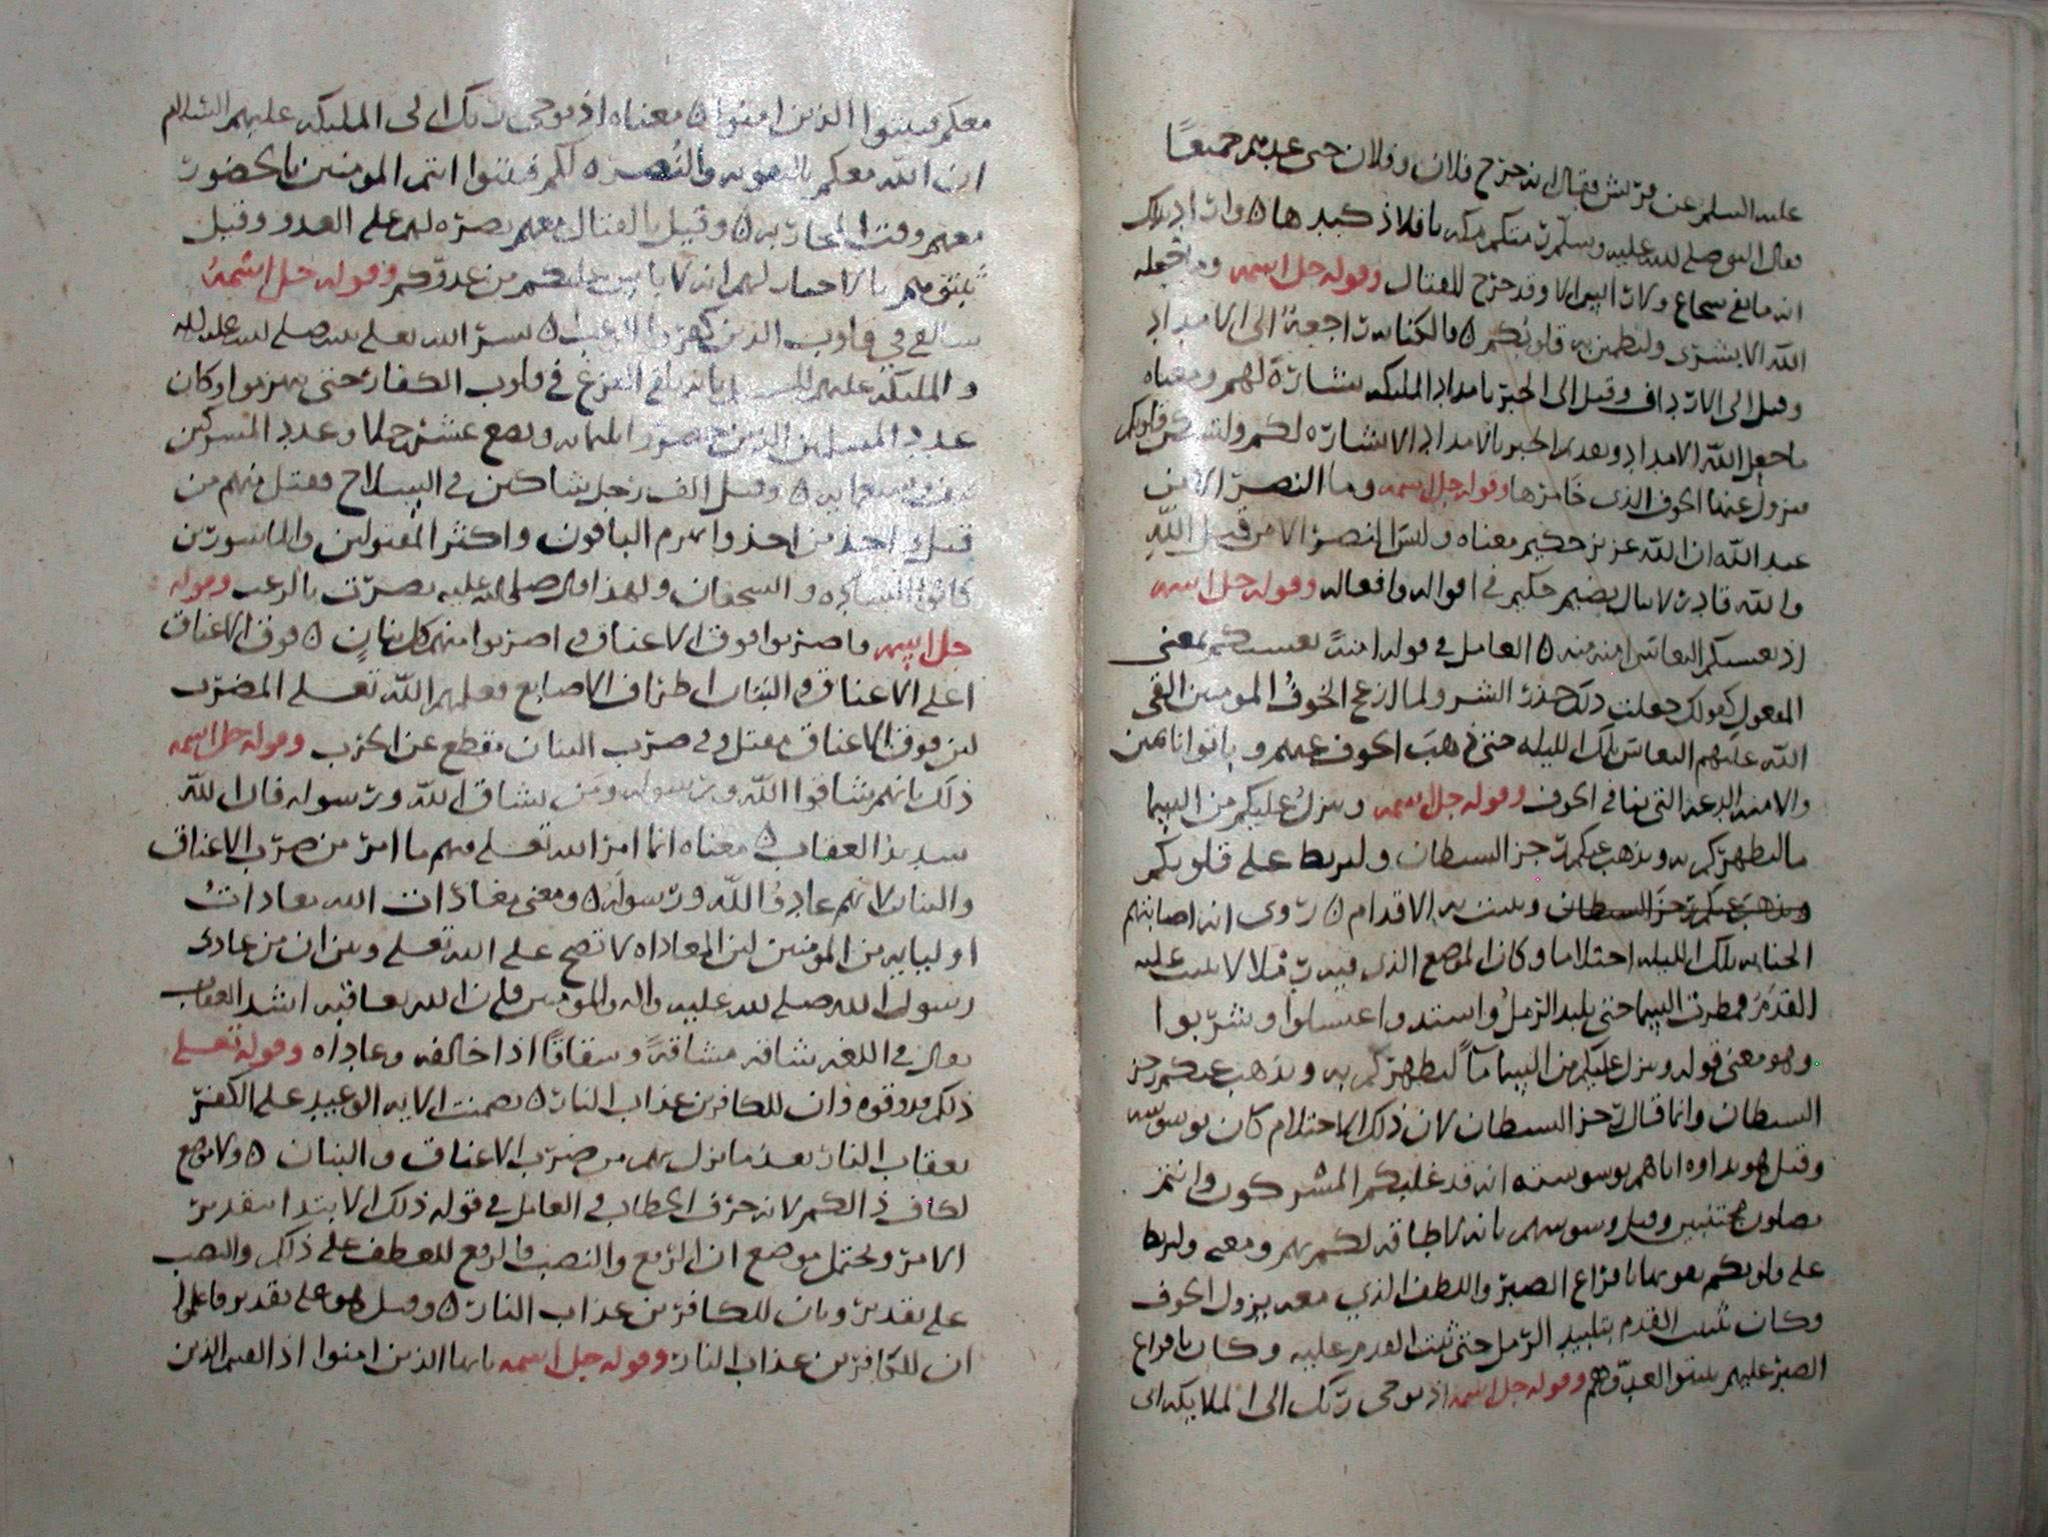 عليه السلم عن قريش فقال انه خرج فلان وفلان حتى عدهم جميعًا
فقال النبي صلى الله عليه وسلم رمتكم مكه بافلاذ كبدها ۝ واراد بذلك
انه ما بقي شجاع ولا رايس الا وقد خرج للقتال وقوله جل اسمه وما جعله
الله الا بشرى ولتطمئن به قلوبكم ۝ فالكنايه راجعة الى الامداد
وقيل الى الارداف وقيل الى الخبر بامداد الملئكه بشارة لهم ومعناه
ما جعل الله الامداد الخبر بالامداد الا بشاره لكم ولتسكن قلوبكم
فيزول عنها الخوف الذى خامرها وقوله جل اسمه وما النصر الا من
عند الله ان الله عزيز حكيم معناه وليس النصر الا من قبل الله
والله قادر لا حكيم في اقواله وافعاله وقوله جل اسمه
اذ يغشيكم النعاس امنه منه ۝ العامل في قوله امنةً يغشيكم بمعنى
المفعول كقولك فعلت ذلك حذر الشر ولما ازعج الخوف المومنين القى
الله عليهم النعاس تلك الليله حتى ذهب الخوف عنهم وباتوا نائمين
والامنه الدعه التي تنافي الخوف وقوله جل اسمه وينزل عليكم من السما
ما ليطهركم به ويذهب عنكم رجز الشيطان وليربط على قلوبكم
ويذهب عنكم رجز الشيطان ويثبت به الاقدام ۝ روى انه اصابتهم
الجنابه تلك الليله احتلاما وكان الموضع الذى فيه رملا لا يثبت عليه
القدم فمطرت السما حتى تلبد الرمل واشتد واغتسلوا وشربوا
وهو معنى قوله وينزل عليكم من السما مآً ليطهركم به ويذهب عنكم رجز
الشيطان وانما قال رجز الشيطان لان ذلك الاحتلام كان بوسوسته
وقيل هو اياهم بوسوسته انه قد غلبكم المشركون وانتم
تصلون مجنبين وقيل وسوسهم بانه لا طاقه لكم بهم ومعنى وليربط
على قلوبكم يقويها بافراغ الصبر واللطف الذي معه يزول الخوف
وكان تثبيت القدم بتلبيد الرمل حتى ثبت القدم عليه وكان بافراغ
الصبر عليهم وقوله جل اسمه اذ يوحى ربك الى الملايكه انى
معكم فثبتوا الذين امنوا ۝ معناه اذ يوحى ربك الى المليكه عليهم السلام
ان الله معكم بالمعونه والنصره لكم فثبتوا انتم المومنين بالحضور
معهم وقت المحاربه ۝ وقيل بالقتال معهم نصره لهم على العدو وقيل
ثبتوهم بالاخبار لهم انه لا باس عليكم من عدوكم وقوله جل اسمه
سالقي في قلوب الذين كفروا الرعب ۝ بشر الله تعلى نبيه صلى الله عليه واله
والمليكه عليهم السلم بانه يلقى الفزع في قلوب الكفار حتى يهزموا وكان
عدد المسلمين الذين حضروا ثلثمايه وبضع عشر رجلا وعدد المشركين
وقيل الف رجل شاكين في السلاح فقتل منهم من
قتل واخذ من اخذ وانهزم الباقون واكثر المقتولين والماسورين
كانوا الساده والشجعان ولهذا قال صلى الله عليه نصرت بالرعب وقوله
جل اسمه فاضربوا فوق الاعناق واضربوا منهم كل بنان ۝ فوق الاعناق
اعلى الاعناق والبنان اطراف الاصابع فعلمهم الله تعلى المضرب
لان فوق الاعناق مقتل وفي ضرب البنان يقطع عن الحرب وقوله جل اسمه
ذلك بانهم شاقوا الله ورسوله ومن يشاق الله ورسوله فان الله
شديد العقاب ۝ معناه انما امر الله تعلى فيهم ما امر من ضرب الاعناق
والبنان لانهم عادوا الله ورسوله ۝ ومعنى معادات الله معادات
اوليايه من المومنين لان المعاداه لا تصح على الله تعلى وبين ان من عادى
رسول الله صلى الله عليه واله والمومنين فان الله يعاقبه اشد العقاب
يقال في اللغه شاقه مشاقةً وشقاقًا اذا خالفه وعاداه وقوله تعلى
ذلكم فذوقوه وان للكافرين عذاب النار ۝ تضمنت الايه الوعيد على الكفر
بعقاب النار بعد ما نزل بهم من ضرب الاعناق والبنان ۝ ولا موضع
لكاف ذالكم لانه حرف الخطاب والعامل في قوله ذلك الابتدا بتقدير
الامر ويحتمل موضع ان الرفع والنصب فالرفع للعطف على ذلك والنصب
على تقدير وبان للكافرين عذاب النار ۝ وقيل هو على تقدير واعلموا
ان للكافرين عذاب النار وقوله جل اسمه يا ايها الذين امنوا اذا لقيتم الذين